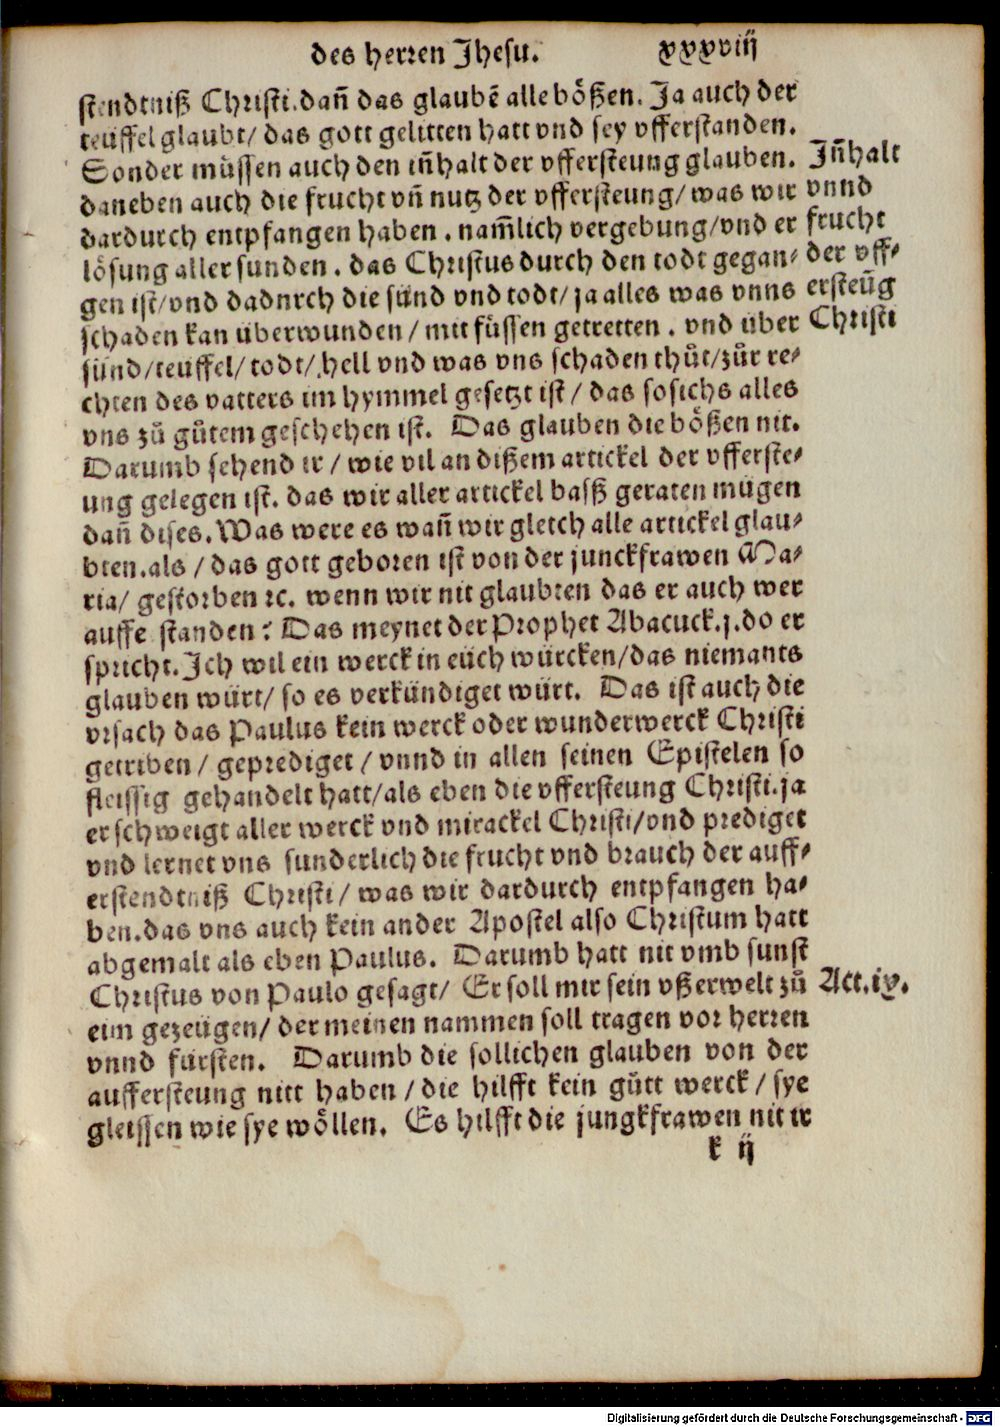 des herren Jhesu. xxxviij
stendtniß Christi. dañ das glaubē alle bößen. Ja auch der
teüffel glaubt/ das gott gelitten hatt vnd sey vfferstanden.
Sonder müssen auch den iñhalt der vffersteung glauben.
daneben auch die frucht vñ nutz der vffersteung/ was wir
dardurch entpfangen haben. nam̃lich vergebung/ vnd er
lösung aller sunden. das Christus durch den todt gegan⸗
gen ist/ vnd dadnrch die sünd vnd todt/ ja alles was vnns
schaden kan überwunden/ mit füssen getretten. vnd über
sünd/ teüffel/ todt/ hell vnd was vns schaden thůt/ zůr re⸗
chten des vatters im hymmel gesetzt ist/ das sosichs alles
vns zů gůtem geschehen ist. Das glauben die bößen nit.
Darumb sehend ir/ wie vil an dißem artickel der vfferste⸗
ung gelegen ist. das wir aller artickel basß geraten mügen
dañ dises. Was were es wañ wir gleich alle artickel glau⸗
bten. als/ das gott geboren ist von der junckfrawen Ma⸗
ria/ gestorben ꝛc. wenn wir nit glaubten das er auch wer
auffe standen? Das meynet der Prophet Abacuck. j. do er
spricht. Ich wil ein werck in eüch würcken/ das niemants
glauben würt/ so es verkündiget würt. Das ist auch die
vrsach das Paulus kein werck oder wunderwerck Christi
getriben/ geprediget/ vnnd in allen seinen Epistelen so
fleissig gehandelt hatt/ als eben die vffersteung Christi. ja
er schweigt aller werck vnd mirackel Christi/ vnd prediget
vnd lernet vns sunderlich die frucht vnd brauch der auff⸗
erstendtniß Christi/ was wir dardurch entpfangen ha⸗
ben. das vns auch kein ander Apostel also Christum hatt
abgemalt als eben Paulus. Darumb hatt nit vmb sunst
Christus von Paulo gesagt/ Er soll mir sein vßerwelt zů
eim gezeügen/ der meinen nammen soll tragen vor herren
vnnd fürsten. Darumb die sollichen glauben von der
auffersteung nitt haben/ die hilfft kein gůtt werck/ sye
gleissen wie sye wöllen. Es hilfft die jungkfrawen nit ir
k ij
Jñhalt
vnnd
frucht
der vff⸗
ersteūg
Christi
Act. ix.
Digitalisierung gefördert durch die Deutsche Forschungsgemeinschaft - DFG